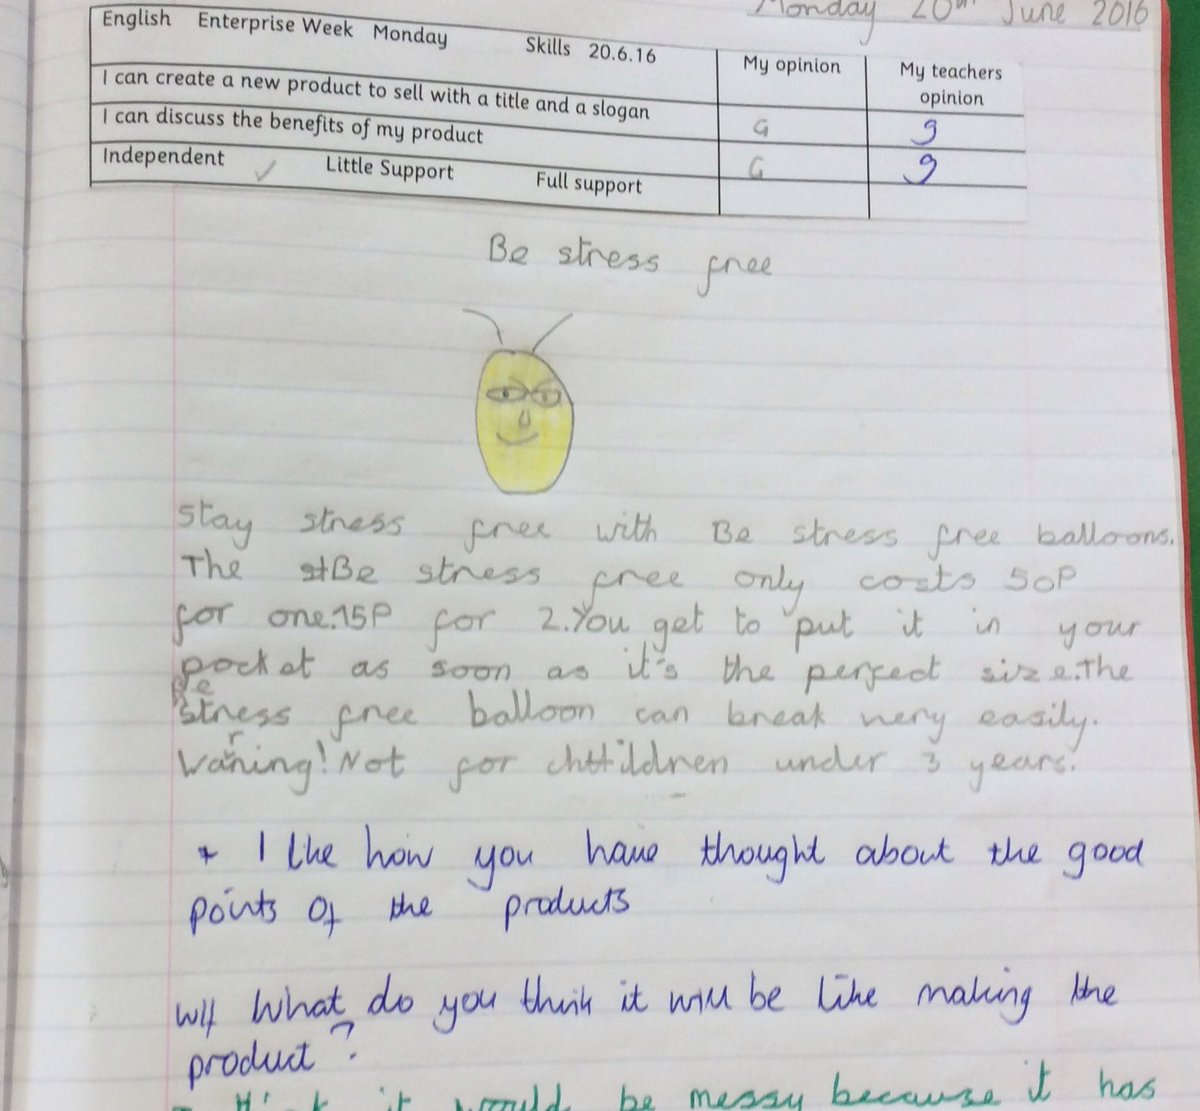 Monday 20th June 2016
English Enterprise Week Monday Skills 20.6.16
My opinion
My teachers opinion
I can create a new product to sell with a title and a slogan
G g
I can discuss the benefits of my product
G g
Independent ✓ Little Support Full support
Be stress free
Stay stress free with Be stress free balloons.
The stBe stress free only costs 50P
for one.75P for 2.You get to put it in your
pocket as soon as it's the perfect size.The
Be
stress free balloon can break very easily.
Warning! Not for chttildren under 3 years.
* I like how you have thought about the good
points of the products
W4 What do you think it will be like making the
product?
it would be messy because it has